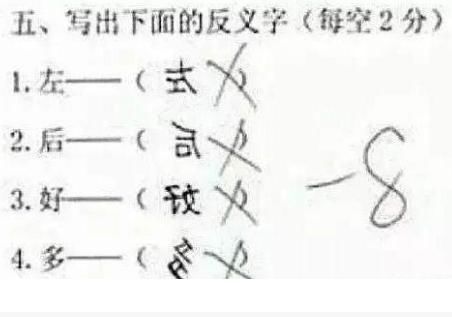 五、写出下面的反义字（每空2分）
1.左——（左）
2.后——（后）
3.好——（好）
4.多——（多）
-8